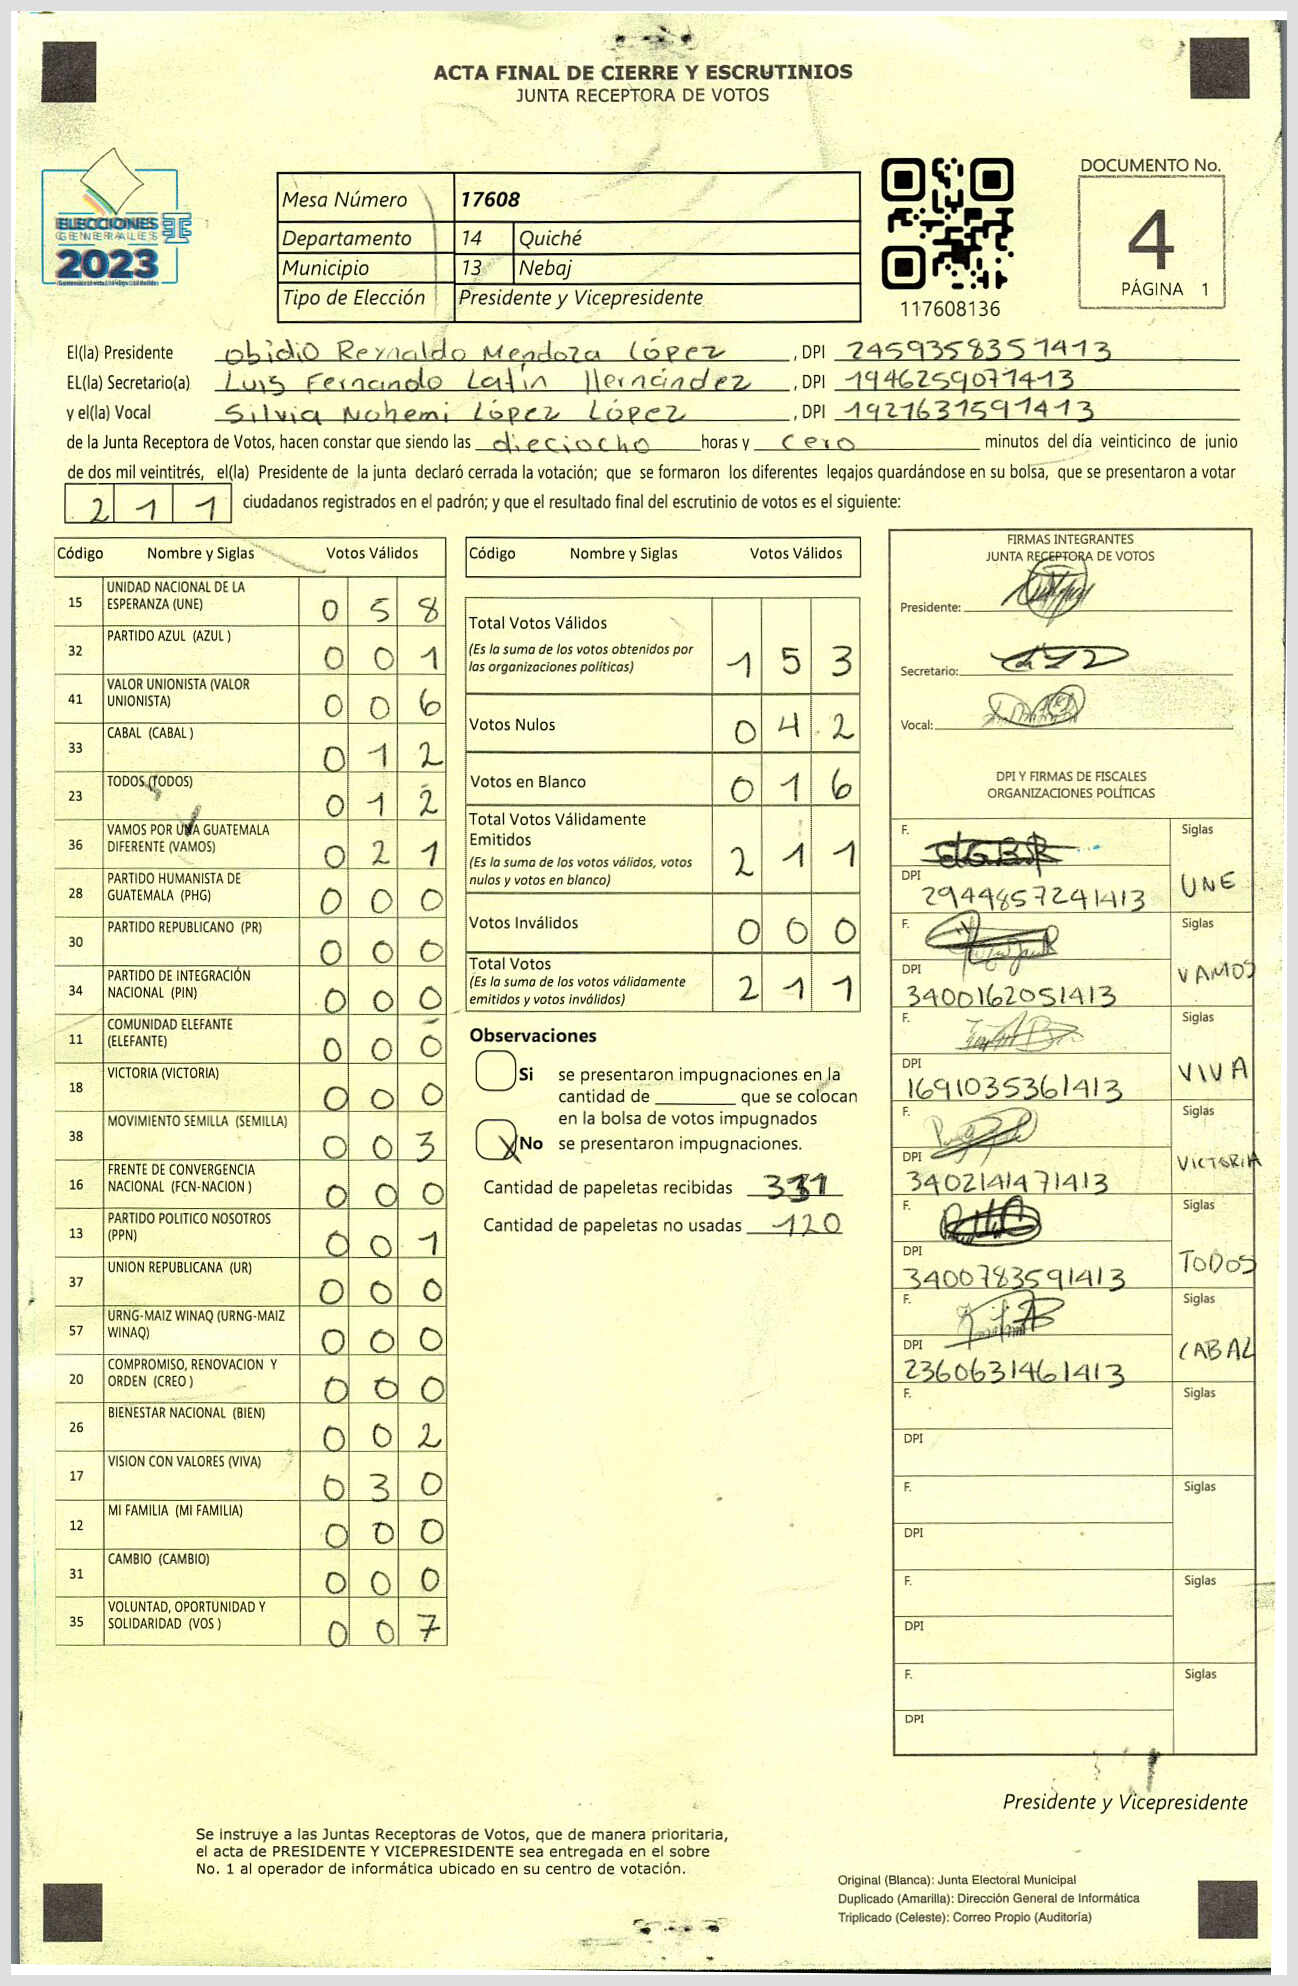 ACTA FINAL DE CIERRE Y ESCRUTINIOS
JUNTA RECEPTORA DE VOTOS
ELECCIONES
GENERALES
2023
Mesa Número 17608
Departamento 14 Quiché
Municipio 13 Nebaj
Tipo de Elección Presidente y Vicepresidente
117608136
DOCUMENTO No.
4
PÁGINA 1
El(la) Presidente Obidio Reynaldo Mendoza López, DPI 2459358351413
EL(la) Secretario(a) Luis Fernando Latín Hernández, DPI 1946259071413
y el(la) Vocal Silvia Nohemi López López, DPI 1921631591413
de la Junta Receptora de Votos, hacen constar que siendo las dieciocho horas y cero minutos del día veinticinco de junio
de dos mil veintitrés, el(la) Presidente de la junta declaró cerrada la votación; que se formaron los diferentes legajos guardándose en su bolsa, que se presentaron a votar
211 ciudadanos registrados en el padrón; y que el resultado final del escrutinio de votos es el siguiente:
Código Nombre y Siglas Votos Válidos
15 UNIDAD NACIONAL DE LA
ESPERANZA (UNE) 0 5 8
32 PARTIDO AZUL (AZUL ) 0 0 1
41 VALOR UNIONISTA (VALOR
UNIONISTA) 0 0 6
33 CABAL (CABAL ) 0 1 2
23 TODOS (TODOS) 0 1 2
36 VAMOS POR UNA GUATEMALA
DIFERENTE (VAMOS) 0 2 1
28 PARTIDO HUMANISTA DE
GUATEMALA (PHG) 0 0 0
30 PARTIDO REPUBLICANO (PR) 0 0 0
34 PARTIDO DE INTEGRACIÓN
NACIONAL (PIN) 0 0 0
11 COMUNIDAD ELEFANTE
(ELEFANTE) 0 0 0
18 VICTORIA (VICTORIA) 0 0 0
38 MOVIMIENTO SEMILLA (SEMILLA) 0 0 3
16 FRENTE DE CONVERGENCIA
NACIONAL (FCN-NACION ) 0 0 0
13 PARTIDO POLITICO NOSOTROS
(PPN) 0 0 1
37 UNION REPUBLICANA (UR) 0 0 0
57 URNG-MAIZ WINAQ (URNG-MAIZ
WINAQ) 0 0 0
20 COMPROMISO, RENOVACION Y
ORDEN (CREO ) 0 0 0
26 BIENESTAR NACIONAL (BIEN) 0 0 2
17 VISION CON VALORES (VIVA) 0 3 0
12 MI FAMILIA (MI FAMILIA) 0 0 0
31 CAMBIO (CAMBIO) 0 0 0
35 VOLUNTAD, OPORTUNIDAD Y
SOLIDARIDAD (VOS ) 0 0 7
Código Nombre y Siglas Votos Válidos
Total Votos Válidos
(Es la suma de los votos obtenidos por
las organizaciones políticas) 1 5 3
Votos Nulos 0 4 2
Votos en Blanco 0 1 6
Total Votos Válidamente
Emitidos
(Es la suma de los votos válidos, votos
nulos y votos en blanco) 2 1 1
Votos Inválidos 0 0 0
Total Votos
(Es la suma de los votos válidamente
emitidos y votos inválidos) 2 1 1
Observaciones
Si se presentaron impugnaciones en la
cantidad de ________ que se colocan
en la bolsa de votos impugnados
X No se presentaron impugnaciones.
Cantidad de papeletas recibidas 331
Cantidad de papeletas no usadas 120
FIRMAS INTEGRANTES
JUNTA RECEPTORA DE VOTOS
Presidente:
Secretario:
Vocal:
DPI Y FIRMAS DE FISCALES
ORGANIZACIONES POLÍTICAS
F. Siglas
DPI 2944857241413 UNE
F. Siglas
DPI 3400162051413 VAMOS
F. Siglas
DPI 1691035361413 VIVA
F. Siglas
DPI 3402141471413 VICTORIA
F. Siglas
DPI 3400783591413 TODOS
F. Siglas
DPI 2360631461413 CABAL
F. Siglas
DPI
F. Siglas
DPI
F. Siglas
DPI
F. Siglas
DPI
Presidente y Vicepresidente
Se instruye a las Juntas Receptoras de Votos, que de manera prioritaria,
el acta de PRESIDENTE Y VICEPRESIDENTE sea entregada en el sobre
No. 1 al operador de informática ubicado en su centro de votación.
Original (Blanca): Junta Electoral Municipal
Duplicado (Amarilla): Dirección General de Informática
Triplicado (Celeste): Correo Propio (Auditoría)